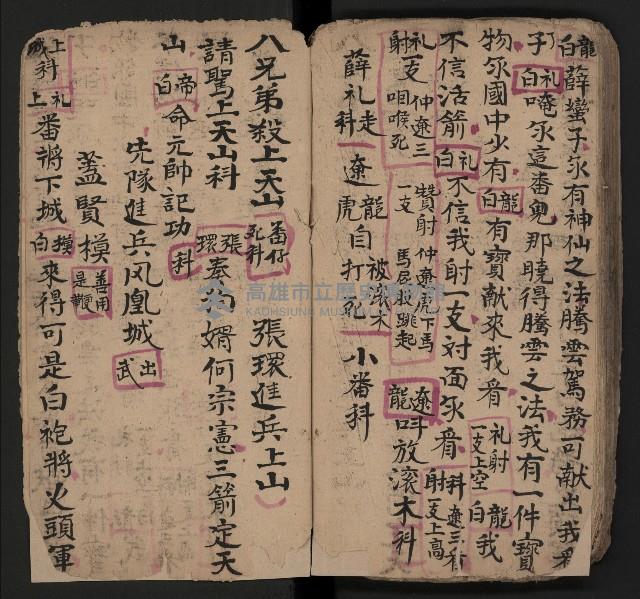 白龍 薛蠻子尔有神仙之法騰雲駕務可献出我看
子 白礼 唵尔這番兒那曉得騰雲之法我有一件寶
物尔國中少有 白龍 有寶献來我看 礼射一支上空 白龍 我
不信活箭 白礼 不信我射一支对面尔看 科 遼三看 射一支上高
射礼一支 仲遼三咽喉死 一支 贊射 仲遼虎下馬 馬尾股跳起 龍遼 叫放滚木科
薛礼走科 遼虎自打死 龍被滚木 小番科
八兄弟殺上天山 番仔死科 張環進兵上山
請駕上天山科 環張 奏為婿何宗憲三箭定天
山 白帝 命元帥記功 科
先隊進兵凤凰城 武出
蓋賢模 善用是鞭
城上科 上礼 番將下城 白模 來得可是白袍將火頭軍
高雄市立歷史博物館
KAOHSIUNG MUSEUM